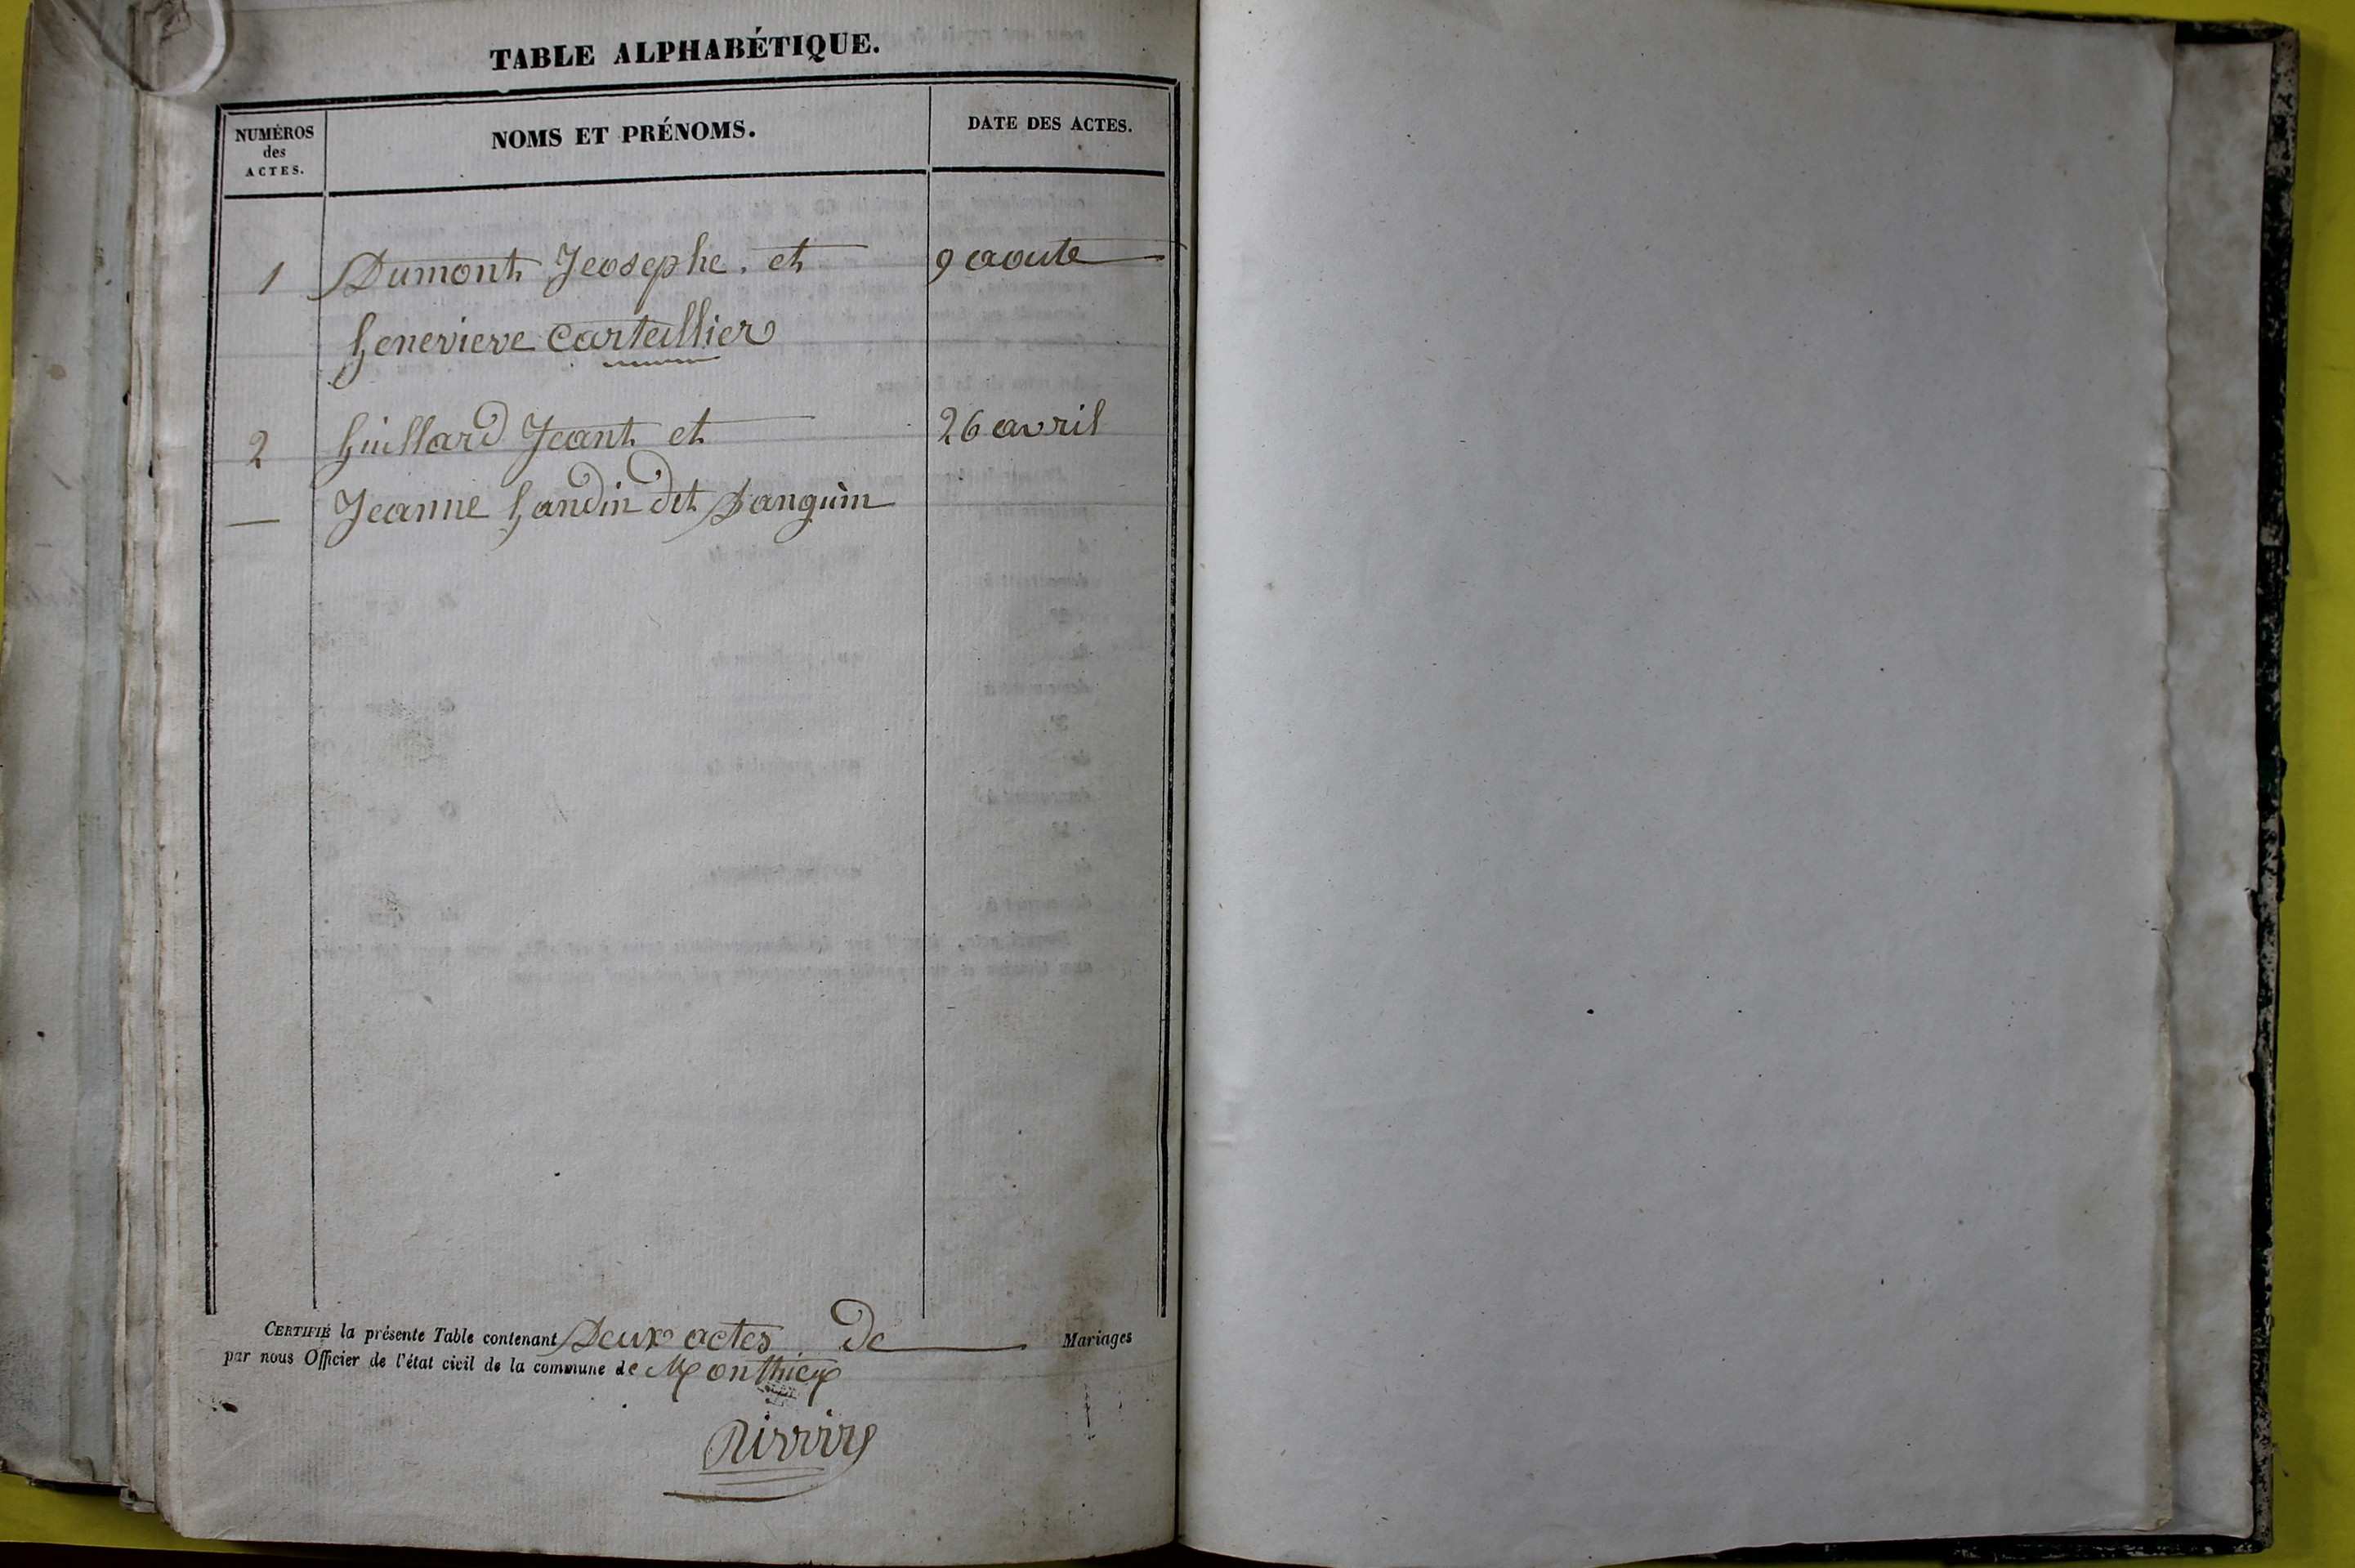 TABLE ALPHABÉTIQUE.
NUMÉROS
des
ACTES.
NOMS ET PRÉNOMS.
DATE DES ACTES.
1 Dumont Jeosephe. et 9 aoute
Genevieve Carteillier
2 Guillard Jeant et 26 avril
Jeanne Gandin dit Sanguin
CERTIFIÉ la présente Table contenant Deux actes de Mariages
par nous Officier de l'état civil de la commune de Monthieux